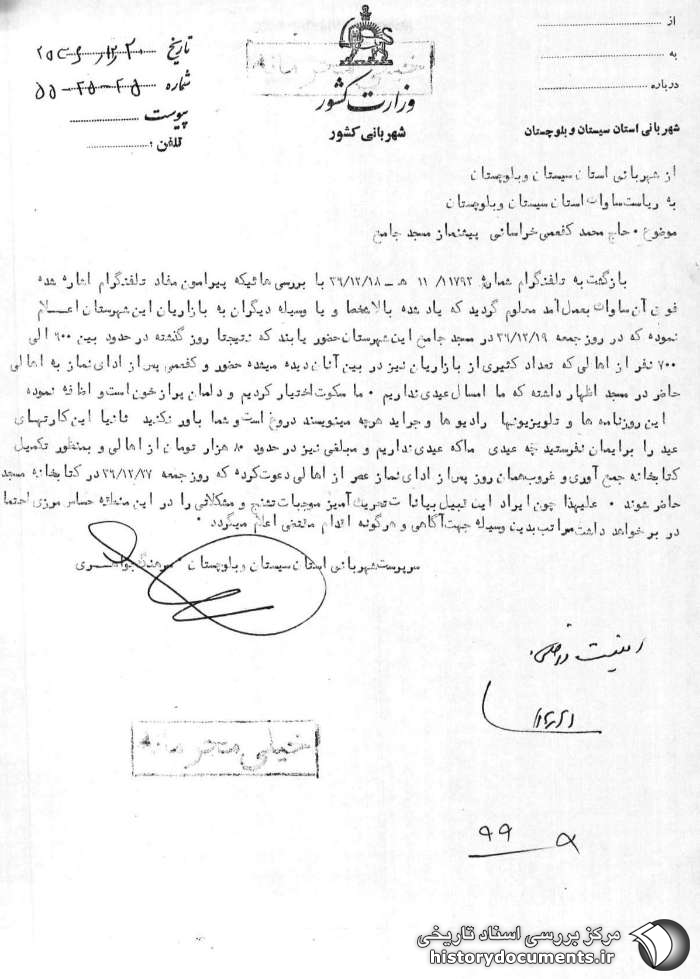 از
به
درباره
شهربانی استان سیستان و بلوچستان
وزارت کشور
شهربانی کشور
تاریخ
شماره ۲۵-۲۵-۵۵
پیوست
تلفن :
از شهربانی استان سیستان و بلوچستان
به ریاست ساواک استان سیستان و بلوچستان
موضوع ۰ حاج محمد کفعمی خراسانی پیشنماز مسجد جامع
بازگشت به تلفنگرام شماره ۱۱۷۹۲/ ۱۱ هـ - ۳۶/۱۲/۱۸ با بررسی هائیکه پیرامون مفاد تلفنگرام اشاره شده
فوق آن ساواک بعمل آمد معلوم گردید که یاد شده بالا شخصا و یا وسیله دیگران به بازاریان این شهرستان اعلام
نموده که در روز جمعه ۳۶/۱۲/۱۹ در مسجد جامع این شهرستان حضور یابند که نتیجتا روز گذشته در حدود بین ۶۰۰ الی
۷۰۰ نفر از اهالی که تعداد کثیری از بازاریان نیز در بین آنان دیده میشده حضور و کفعمی پس از ادای نماز به اهالی
حاضر در مسجد اظهار داشته که ما امسال عیدی نداریم ۰ ما سکوت اختیار کردیم و دلمان پر از خون است و اضافه نموده
این روزنامه ها و تلویزیونها رادیو ها و جراید هرچه مینویسند دروغ است و شما باور نکنید ثانیا این کارتهای
عید را برایمان نفرستید چه عیدی ماکه عیدی نداریم و مبلغی نیز در حدود ۸۰ هزار تومان از اهالی و بمنظور تکمیل
کتابخانه جمع آوری و غروب همان روز پس از ادای نماز عصر از اهالی دعوت کرده که روز جمعه ۳۶/۱۲/۲۷ در کتابخانه مسجد
حاضر شوند ۰ علیهذا چون ایراد این قبیل بیانات تحریک آمیز موجبات تشنج و مشکلاتی را در این منطقه حساس مرزی احتما
در بر خواهد داشت مراتب بدین وسیله جهت آگاهی و هرگونه اقدام مقتضی اعلام میگردد ۰
سرپرست شهربانی استان سیستان و بلوچستان سرهنگ جواهری
خیلی محرمانه
۹۹
مرکز بررسی اسناد تاریخی
historydocuments.ir